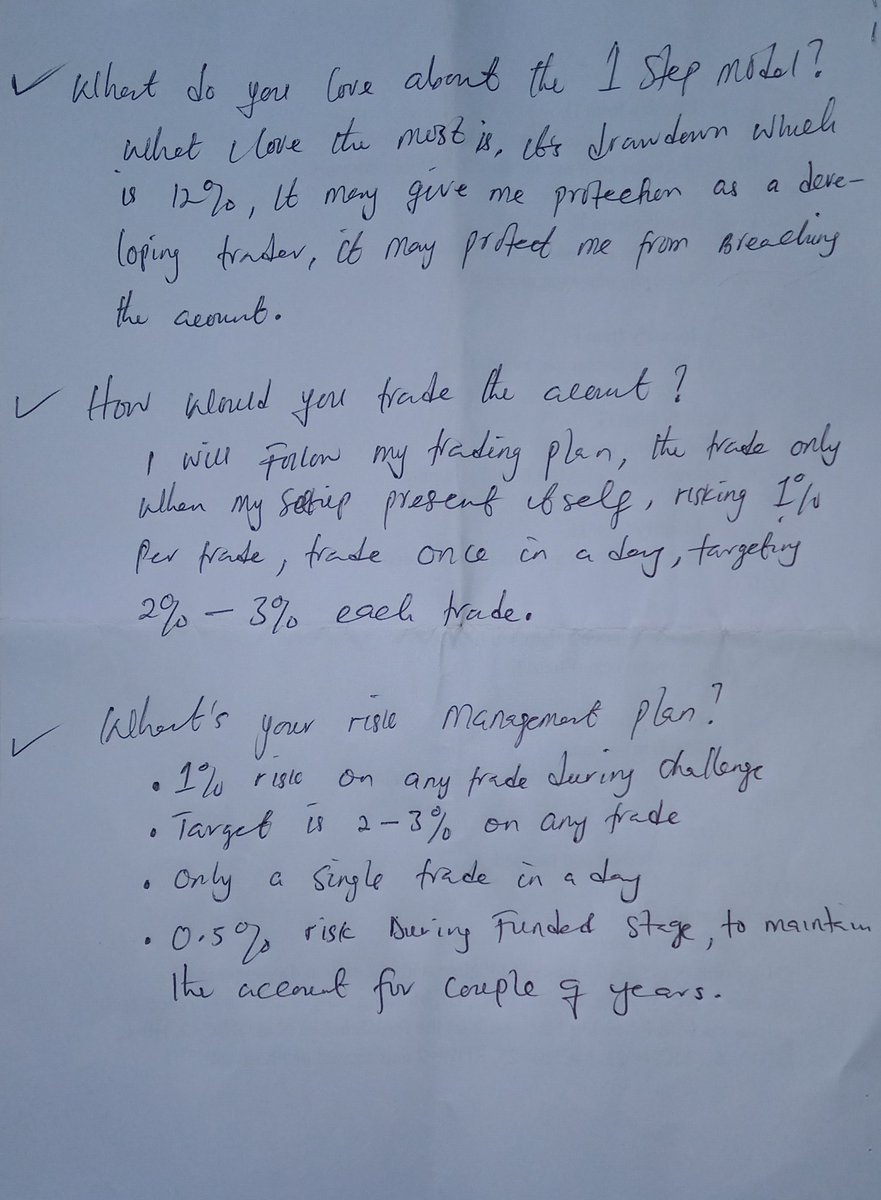 ✓ What do you love about the 1 Step model?
What I love the most is, it's drawdown which
is 12%, It may give me protection as a deve-
loping trader, it may protect me from Breaching
the acount.
✓ How would you trade the acount?
I will Follow my trading plan, the trade only
when my Setup present itself, risking 1%
Per trade, trade once in a day, targeting
2% – 3% each trade.
✓ What's your risk management plan?
• 1% risk on any trade during challenge
• Target is 2 – 3% on any trade
• Only a single trade in a day
• 0.5% risk During Funded Stage, to maintain
the account for couple of years.